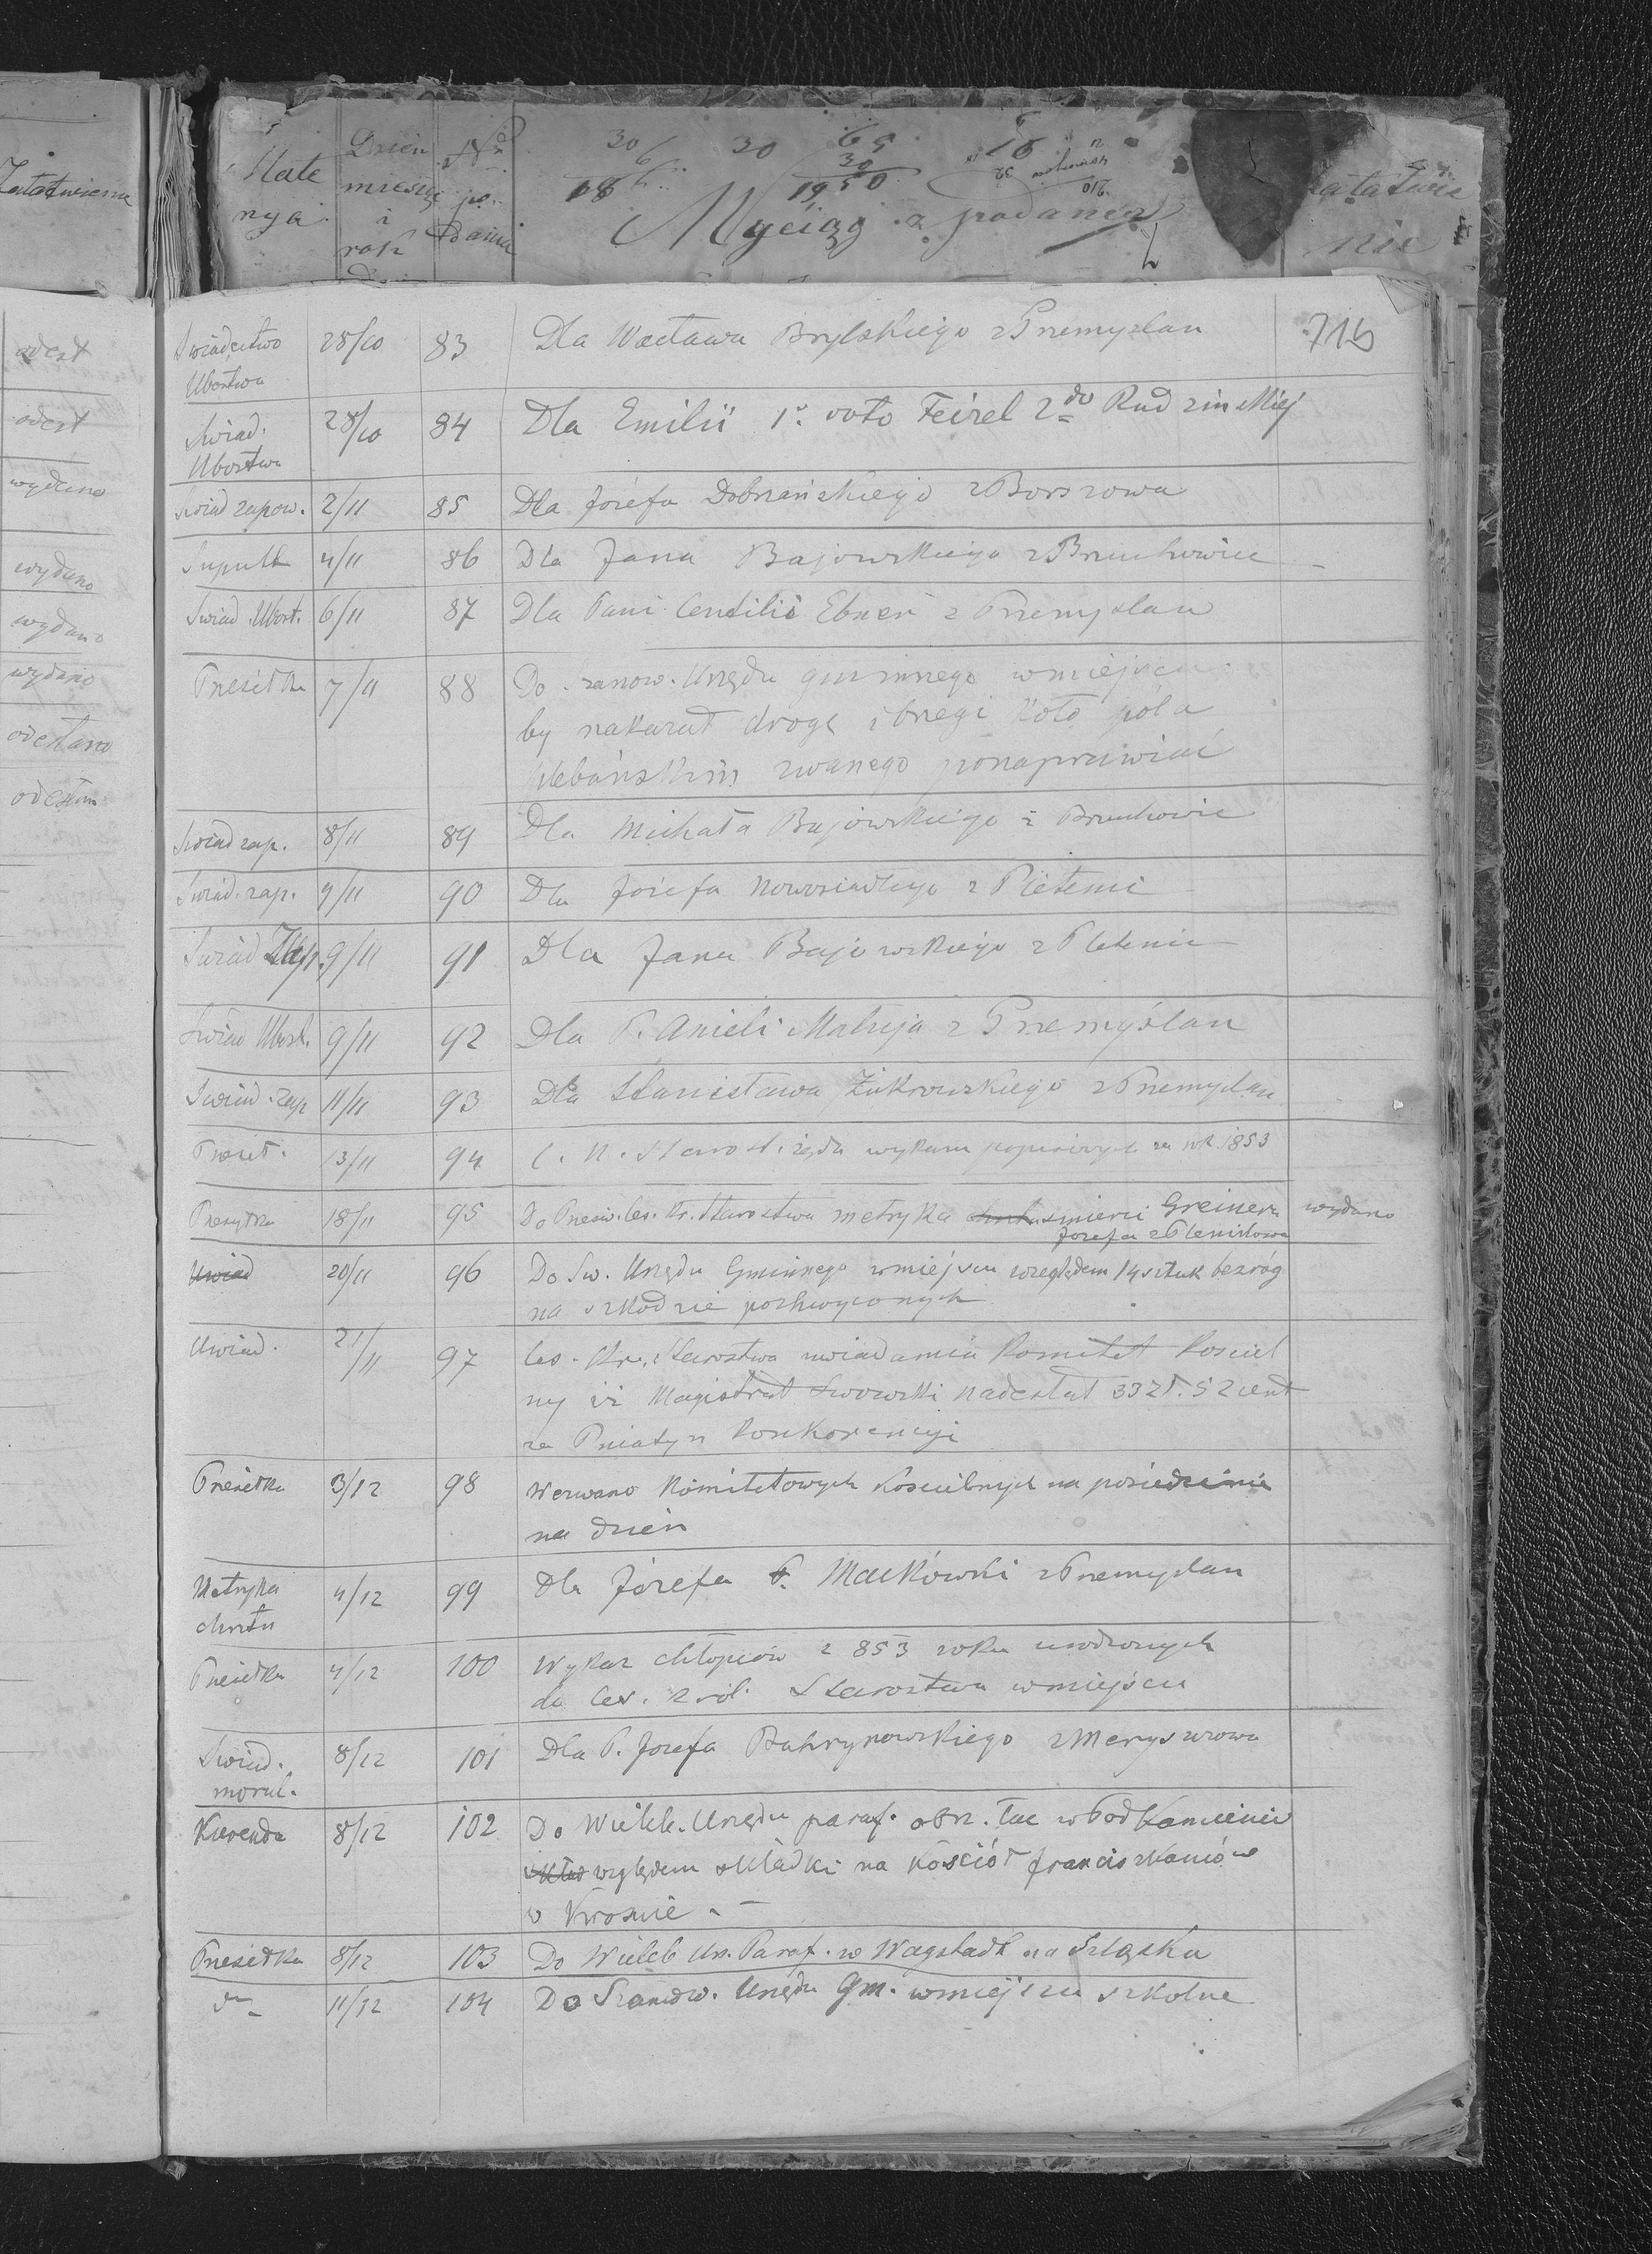 Załatwienie
Mate
rya
Dzień
miesiąc
i
rok
Nr
po
dania
30 6 30 65
30
18 6 19 50
210
Wyciąg z podania
Załatwie
nie
odesł
odesł
wydano
wydano
wydano
wydano
odesłano
odesłano
Swiadectwo 28/10 83 Dla Wacława Brylskiego z Przemyślan 715
Ubostwa
Swiad. 28/10 84 Dla Emilii 1o voto Feirel 2do Rudzinskiej
Ubostwa
Swiad zapow. 2/11 85 Dla Józefa Dobrzańskiego z Borszowa
Sepult 4/11 86 Dla Jana Bajowskiego z Brzuchowic
Swiad. Ubost. 6/11 87 Dla Pani Cecilii Ebner z Przemyslan
Przesiłka 7/11 88 Do Szanow. Urzędu gminnego w miejscu
by nakazał drogę i brzegi koło póla
plebańskim zwanego ponaprawiać
Swiad zap. 8/11 89 Dla Michała Bajowskiego z Brzuchowic
Swiad. zap. 9/11 90 Dla Józefa Nowosiadłego z Pletenic
Swiad Zap. 9/11 91 Dla Jana Bajowskiego z Pletenic
Swiad Ubost. 9/11 92 Dla P. Anieli Matuja z Przemyślan
Swiad. zap 11/11 93 Dla Stanisława Żukrowskiego z Przemyslan
Przesił. 13/11 94 C. K. Starost. żąda wykazu popisowych za rok 1853
Przesyłka 18/11 95 Do Prześw. Ces. Kr. Starostwa metryka smierci Greinera wydano
Jozefa z Plenikowa
Uwiad 20/11 96 Do Sw. Urzędu Gminnego w miejscu względem 14 sztuk bezróg
na szkodzie pochwyconych
Uwiad. 21/11 97 Ces. Kr. Starostwa uwiadamia Komitet Kościel
ny iż Magistrat Lwowski nadesłał 33 zł. 52 cent
za Pniatyn konkorencyi
Przesiłka 3/12 98 Wezwano Komitetowych Koscielnych na posiedzienie
na dzien
Metryka 4/12 99 Dla Józefa P. Maćkówki z Przemyslan
chrztu
Przesiłka 4/12 100 Wykaz chłopców z 853 roku urodzonych
do Ces. Król. Starostwa w miejscu
Swiad. 8/12 101 Dla P. Jozefa Bahrynowskiego z Meryszczowa
moral.
Kurenda 8/12 102 Do Wieleb. Urzędu paraf. obrz. łac w Podkamieniu
względem składki na kościół franciszkanów
w Krośnie. –
Przesiłka 8/12 103 Do Wieleb Urz. Paraf. w Wagstadt na Szląsku
dto 11/12 104 Do Szanow. Urzędu Gm. w miejscu szkolne